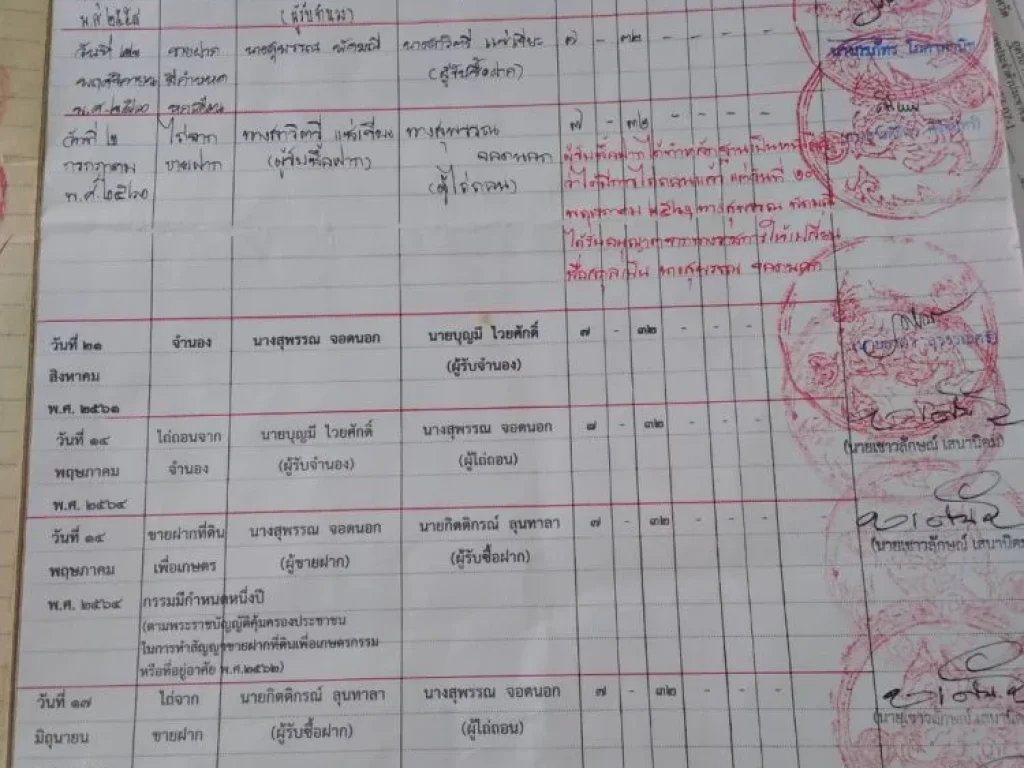 พ.ศ. ๒๕๕๘ (ผู้รับจำนอง)
วันที่ ๒๒ ขายฝาก นางสุพรรณ นางสาวิตรี แซ่เจียะ ๗ - ๓๒ - - - -
พฤศจิกายน มีกำหนด (ผู้รับซื้อฝาก)
พ.ศ. ๒๕๖๐
วันที่ ๒ ไถ่จาก นางสาวิตรี แซ่เจียะ นางสุพรรณ ๗ - ๓๒ - - - -
กรกฎาคม ขายฝาก (ผู้รับซื้อฝาก) จอดนอก
พ.ศ. ๒๕๖๐ (ผู้ไถ่ถอน)
ผู้รับซื้อฝากได้ทำหลักฐานเป็นหนังสือ
ว่าได้มีการไถ่ถอนแล้ว แต่วันที่ ๒๐
พฤษภาคม ๒๕๖๑ นางสุพรรณ
ได้รับอนุญาตจากทางราชการให้เปลี่ยน
ชื่อสกุลเป็น นางสุพรรณ จอดนอก
วันที่ ๒๑ จำนอง นางสุพรรณ จอดนอก นายบุญมี ไวยศักดิ์ ๗ - ๓๒ - - - -
สิงหาคม (ผู้รับจำนอง)
พ.ศ. ๒๕๖๑
วันที่ ๑๔ ไถ่ถอนจาก นายบุญมี ไวยศักดิ์ นางสุพรรณ จอดนอก ๗ - ๓๒ - - - -
พฤษภาคม จำนอง (ผู้รับจำนอง) (ผู้ไถ่ถอน)
(นายเชาวลักษณ์ เสนานิคม)
พ.ศ. ๒๕๖๔
วันที่ ๑๔ ขายฝากที่ดิน นางสุพรรณ จอดนอก นายกิตติกรณ์ ลุนทาลา ๗ - ๓๒ - - - -
พฤษภาคม เพื่อเกษตร (ผู้ขายฝาก) (ผู้รับซื้อฝาก)
(นายเชาวลักษณ์ เสนานิคม
พ.ศ. ๒๕๖๔ กรรมมีกำหนดหนึ่งปี
(ตามพระราชบัญญัติคุ้มครองประชาชน
ในการทำสัญญาขายฝากที่ดินเพื่อเกษตรกรรม
หรือที่อยู่อาศัย พ.ศ.๒๕๖๒)
วันที่ ๑๗ ไถ่จาก นายกิตติกรณ์ ลุนทาลา นางสุพรรณ จอดนอก ๗ - ๓๒ - - - -
มิถุนายน ขายฝาก (ผู้รับซื้อฝาก) (ผู้ไถ่ถอน)
(นายเชาวลักษณ์ เสนานิค